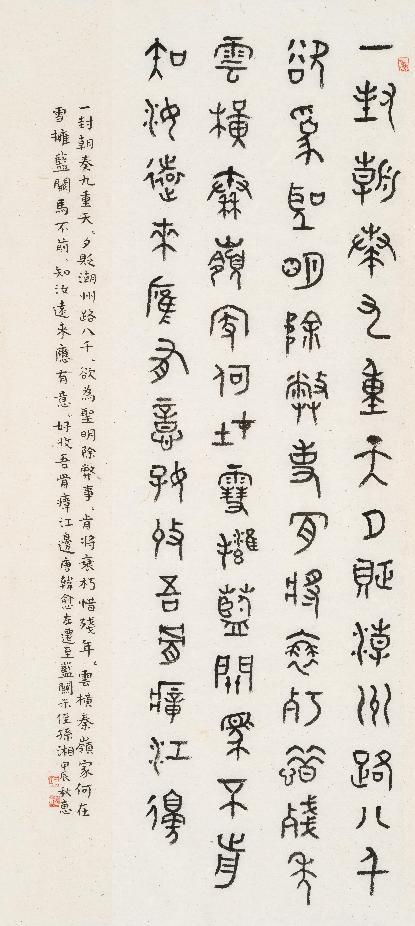 一封朝奏九重天夕貶潮州路八千
欲為聖明除弊事肯將衰朽惜殘年
雲橫秦嶺家何在雪擁藍關馬不前
知汝遠來應有意好收吾骨瘴江邊
一封朝奏九重天、夕貶潮州路八千、欲為聖明除弊事、肯將衰朽惜殘年。雲橫秦嶺家何在
雪擁藍關馬不前、知汝遠來應有意、好收吾骨瘴江邊唐韓愈左遷至藍關示侄孫湘甲辰秋惠